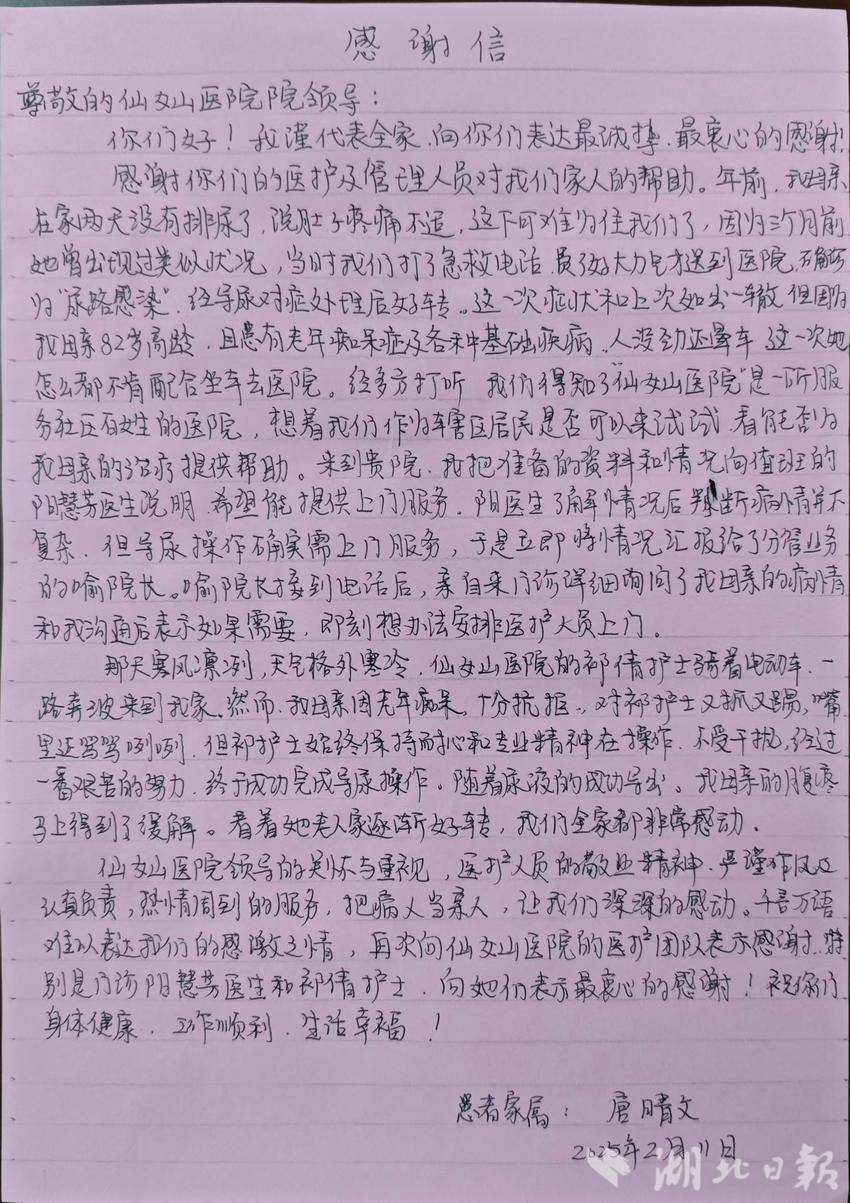 感谢信
尊敬的仙女山医院院领导：
你们好！我谨代表全家，向你们表达最诚挚、最衷心的感谢！
感谢你们的医护及管理人员对我们家人的帮助。年前，我母亲
在家两天没有排尿了，说肚子疼痛不适，这下可难为住我们了，因为三个月前
她曾出现过类似状况，当时我们打了急救电话，费了好大力气才送到医院，确诊
为“尿路感染”，经导尿对症处理后好转。这一次症状和上次如出一辙，但因为
我母亲82岁高龄，且患有老年痴呆症及各种基础疾病，人没劲还晕车，这一次她
怎么都不肯配合坐车去医院。经多方打听，我们得知了“仙女山医院”是一所服
务社区百姓的医院，想着我们作为辖区居民是否可以来试试，看能否为
我母亲的治疗提供帮助。来到贵院，我把准备的资料和情况向值班的
阳慧芳医生说明，希望能提供上门服务。阳医生了解情况后判断病情并不
复杂，但导尿操作确实需上门服务，于是立即将情况汇报给了分管业务
的喻院长。喻院长接到电话后，亲自来门诊详细询问了我母亲的病情
和我沟通后表示如果需要，即刻想办法安排医护人员上门。
那天寒风凛冽，天气格外寒冷，仙女山医院的祁倩护士骑着电动车，一
路奔波来到我家。然而，我母亲因老年痴呆，十分抗拒，对祁护士又抓又踢，嘴
里还骂骂咧咧，但祁护士始终保持耐心和专业精神在操作，不受干扰，经过
一番艰苦的努力，终于成功完成导尿操作。随着尿液的成功导出。我母亲的腹疼
马上得到了缓解。看着她老人家逐渐好转，我们全家都非常感动。
仙女山医院领导的关怀与重视，医护人员的敬业精神、严谨作风及
认真负责，热情周到的服务，把病人当亲人，让我们深深的感动。千言万语
难以表达我们的感激之情，再次向仙女山医院的医护团队表示感谢，特
别是门诊阳慧芳医生和祁倩护士，向她们表示最衷心的感谢！祝你们
身体健康，工作顺利，生活幸福！
患者家属：唐晴文
2025年2月11日
湖北日报